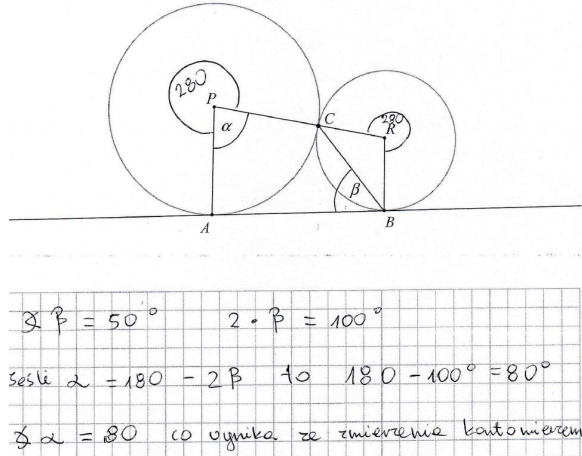 280
P
α
C
280
R
β
A
B
∡ β = 50° 2 · β = 100°
Jeśli α = 180 - 2β to 180 - 100° = 80°
∡ α = 80 co wynika ze zmierzenia kątomierzem